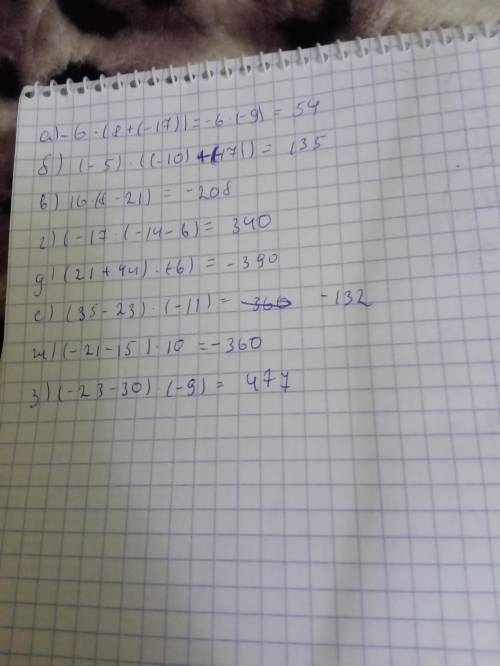 а) -6 · (8 + (-17)) = -6 · (-9) = 54
б) (-5) · ((-10) + (-17)) = 135
в) 16 · (8 - 21) = -208
г) (-17 · (-14 - 6) = 340
д) (21 + 44) · (-6) = -390
е) (35 - 23) · (-11) = -132
ж) (-21 - 15) · 10 = -360
з) (-23 - 30) (-9) = 477